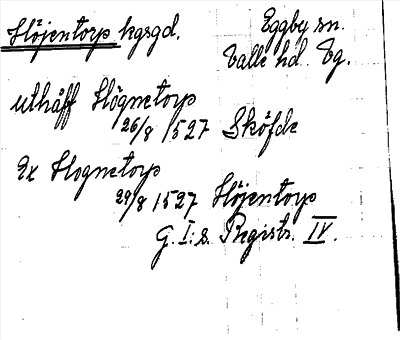 Höjentorp kgsgd. Eggby sn.
Valle hd. Vg.
uthåff Högnetorp
26/8 1527 Sköfde
Ex Hognetorp
29/8 1527 Höjentorp
G. I:s. Registr. IV.